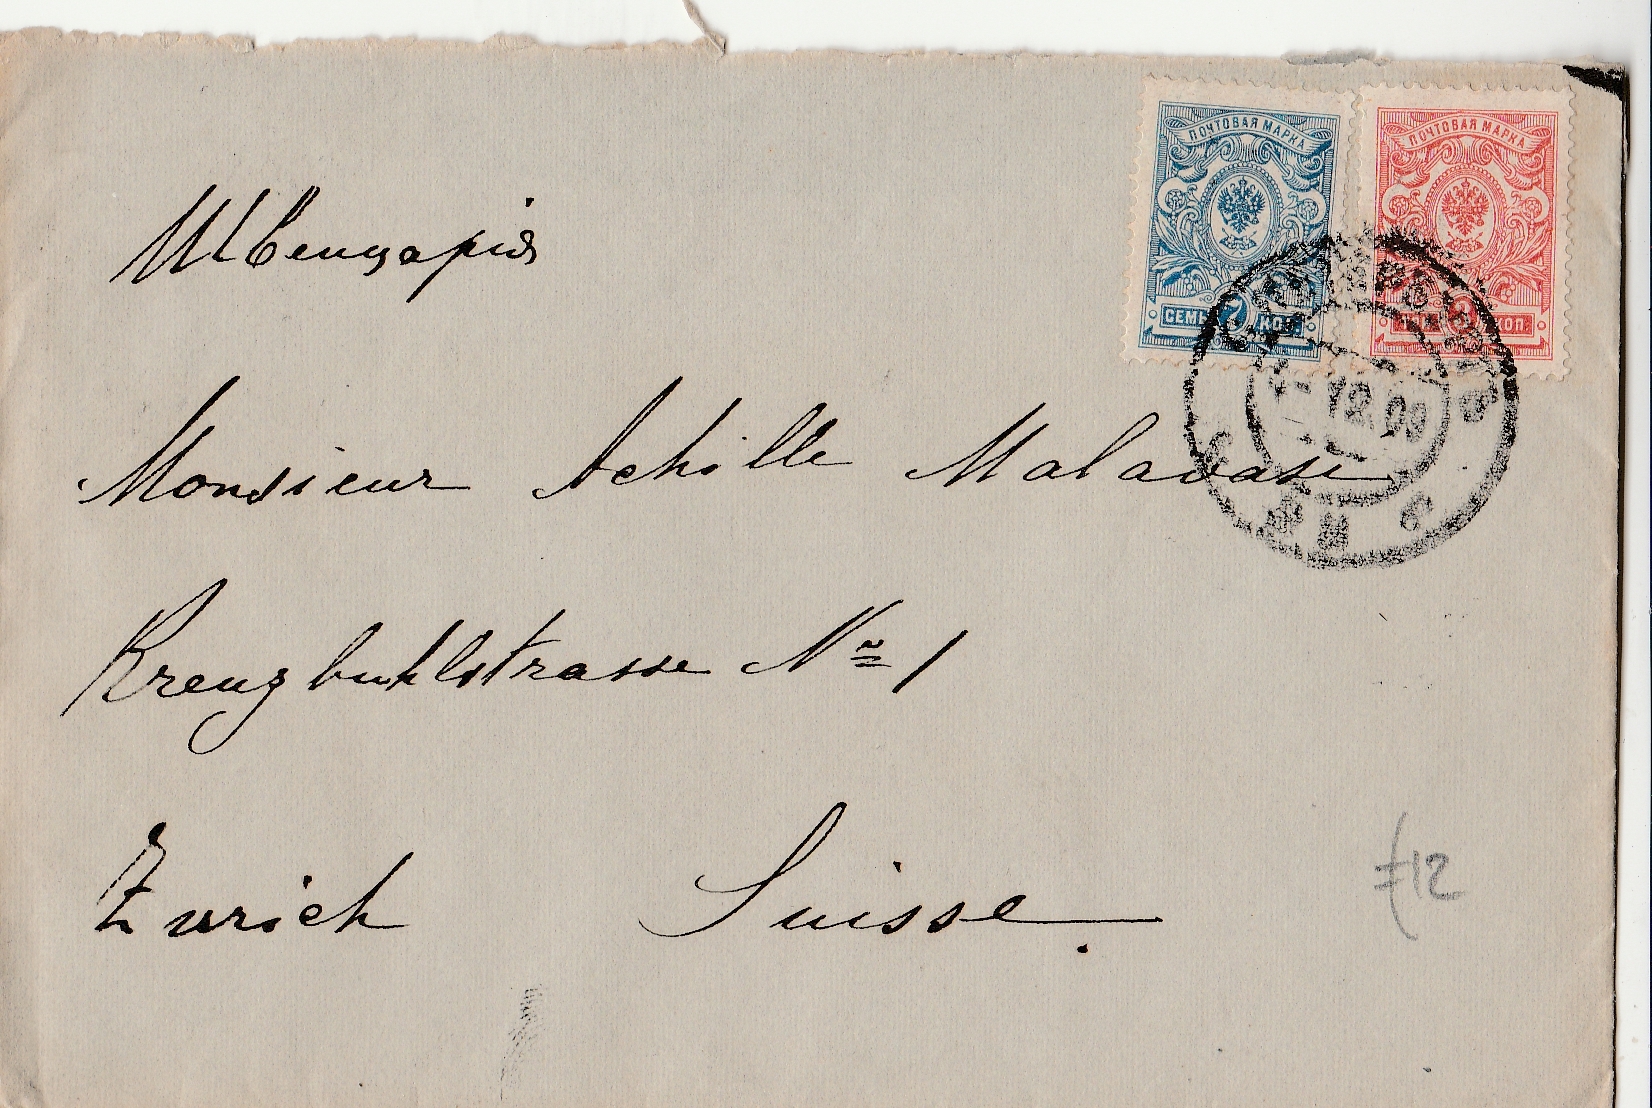 ПОЧТОВАЯ МАРКА ПОЧТОВАЯ МАРКА
СЕМЬ 7 КОП. 3 КОП.
12.09
Швейцарія
Monsieur Achille Malavasi
Kreuzbuhlstrasse Nº 1
Zurich Suisse.
£12